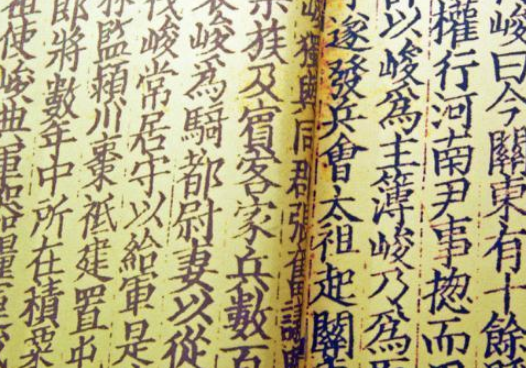 峻曰今關東有十餘
權行河南尹事揔而
以峻為主簿峻乃為
遂發兵會太祖起關
峻獨與同郡張奮議
族及賓客家兵數百
峻為騎都尉妻以從
伐峻常居守以給軍是
監潁川棗祗建置屯
郎將數年中所在積粟
祖使峻典軍器糧運